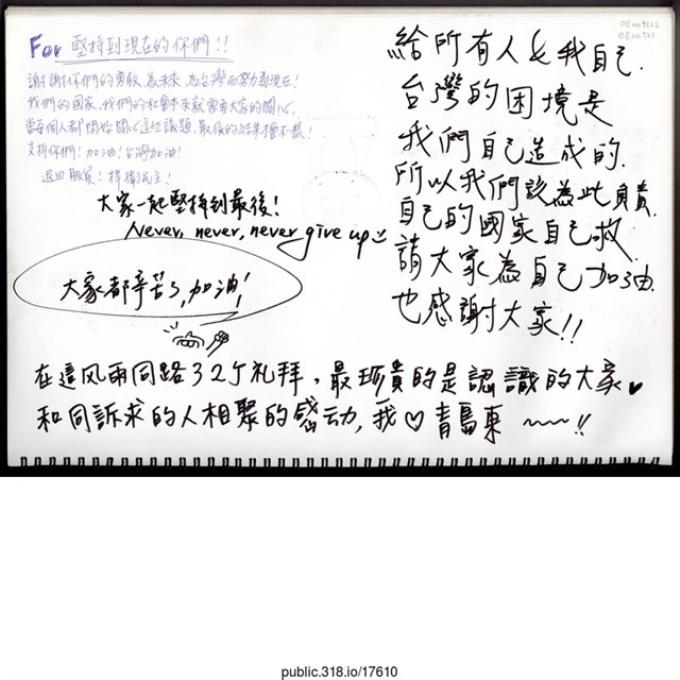 For 堅持到現在的你們!!
謝謝你們的勇敢, 為未來, 為台灣而努力到現在!
我們的國家、我們的社會本來就需要大家的關心,
當每個人都開始關心這些議題, 最後的結果會不一樣!
支持你們! 加油! 台灣加油!
退回服貿! 捍衛民主!
大家一起堅持到最後!
Never, never, never give up
大家都辛苦了, 加油!
OE009
OE00921
給所有人 & 我自己.
台灣的困境是
我們自己造成的.
所以我們該為此負責.
自己的國家自己救.
請大家為自己加油.
也感謝大家!!
在這风雨同路3 2个礼拜, 最珍貴的是認識的大家♥
和同訴求的人相聚的感动, 我♡青島東 ~~!!
public.318.io/17610